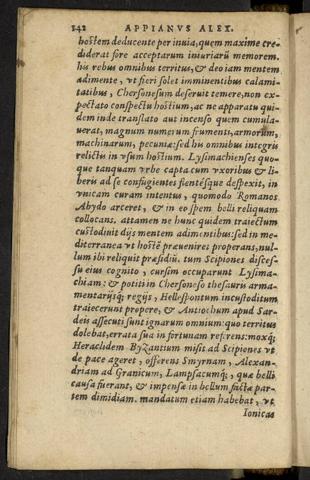 142 APPIANVS ALEX.
hostem deducente per inuia, quem maxime cre-
diderat fore acceptarum iniuriarū memorem.
his rebus omnibus territus, & deo iam mentem
adimente, vt fieri solet imminentibus calami-
tatibus, Chersonesum deseruit temere, non ex-
pectato conspectu hostium, ac ne apparatu qui-
dem inde translato aut incenso quem cumula-
uerat, magnum numerum frumenti, armorum,
machinarum, pecuniæ: sed his omnibus integris
relictis in vsum hostium. Lysimachienses quo-
que tanquam vrbe capta cum vxoribus & li-
beris ad se confugientes flentésque despexit, in
vnicam curam intentus, quomodo Romanos
Abydo arceret, & in eo spem belli reliquam
collocans. attamen ne hunc quidem traiectum
custodiuit dijs mentem adimentibus: sed in me-
diterranea vt hostē præueniret properans, nul-
lum ibi reliquit præsidiū. tum Scipiones disces-
su eius cognito, cursim occuparunt Lysima-
chiam: & potiti in Chersoneso thesauris arma-
mentarijsq; regijs, Hellespontum incustoditum
traiecerunt propere, & Antiochum apud Sar-
deis assecuti sunt ignarum omnium: quo territus
dolebat, errata sua in fortunam referens: moxq;
Heraclidem Byzantium misit ad Scipiones vt
de pace ageret, offerens Smyrnam, Alexan-
driam ad Granicum, Lampsacumq;, quæ belli
causa fuerant, & impensæ in bellum factæ par-
tem dimidiam. mandatum etiam habebat, vt
Ionicas